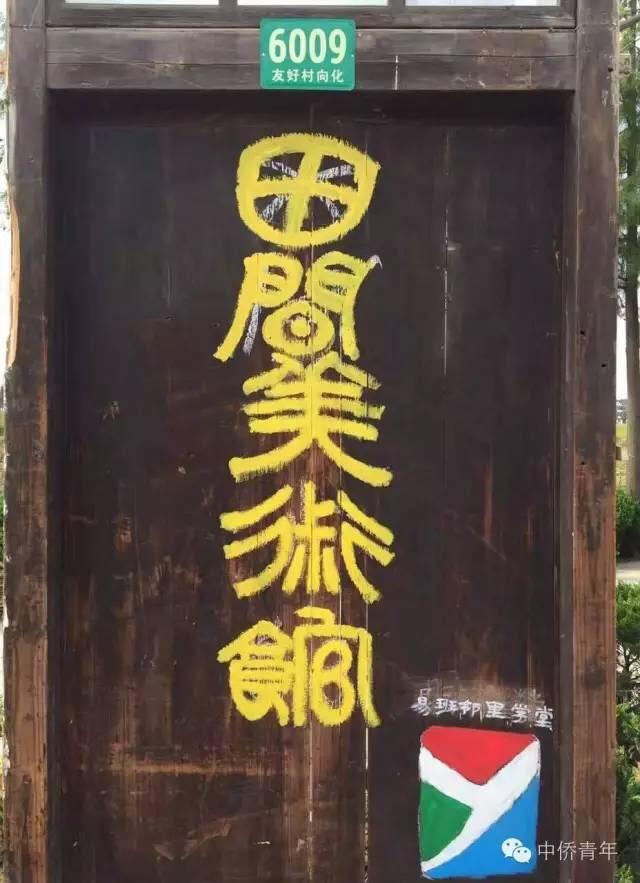 6009
友好村向化
田間美術館
易班邻里学堂
中侨青年